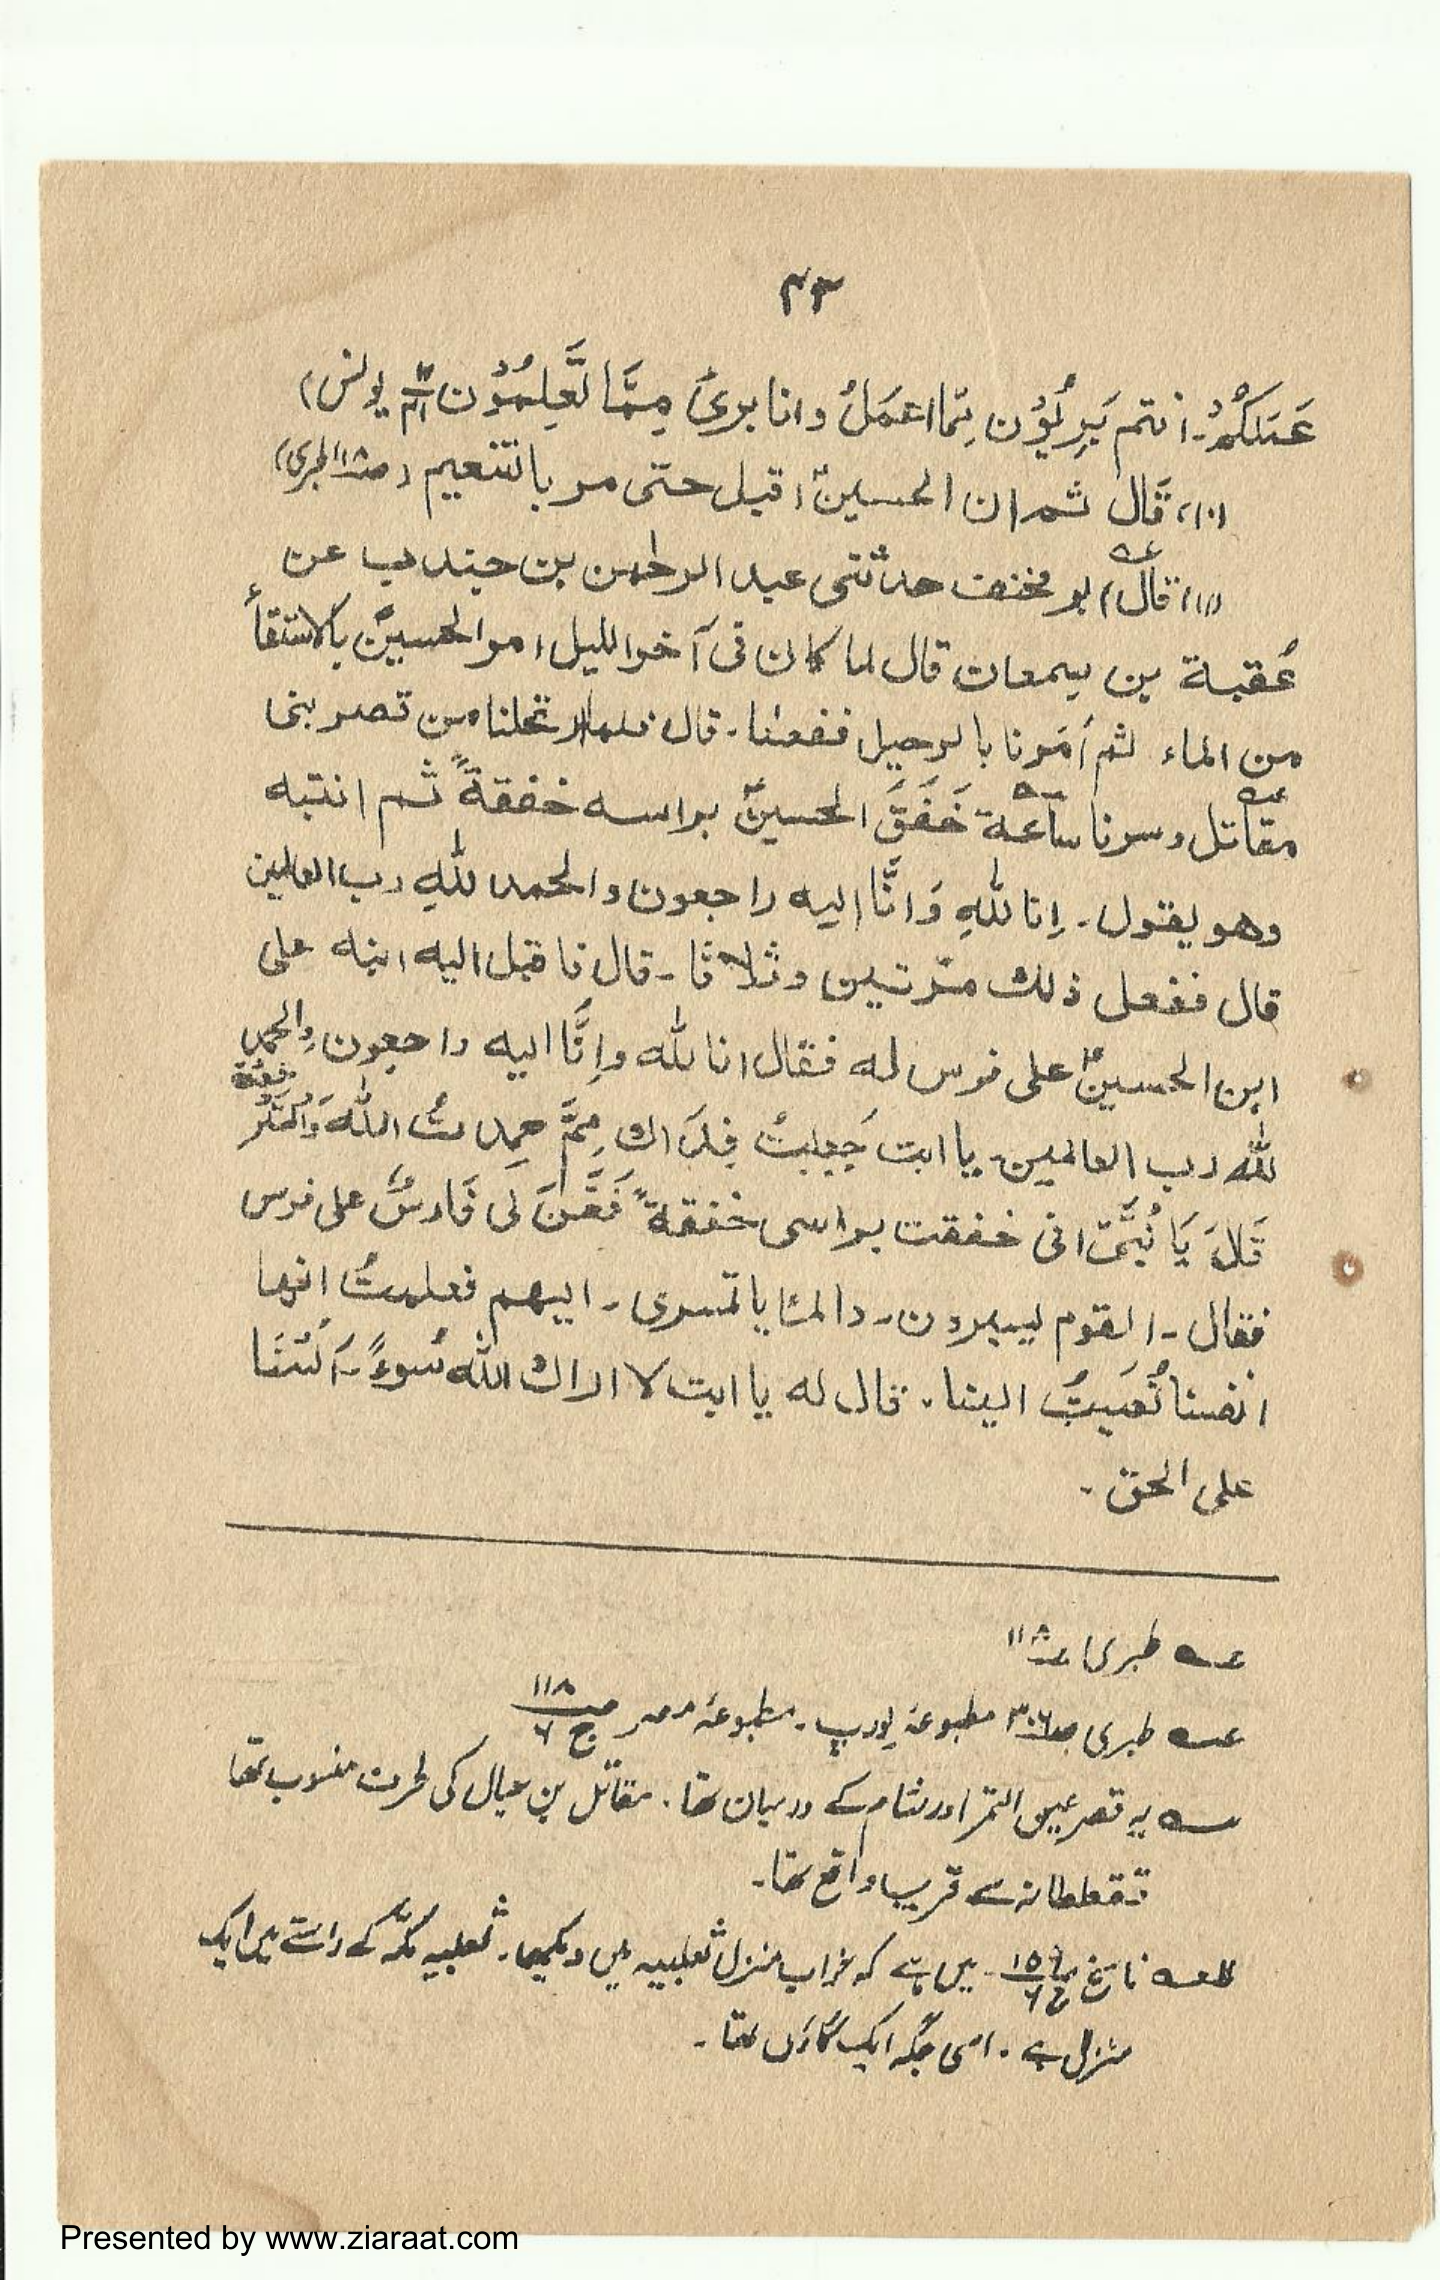 ۴۳
عَمَلكُمْ۔ انتم بَرِیْؤُن مِمَّا اعمَلُ وانا بریٌ مِمَّا تَعلمُوْن یونس)
(۱۰) قَالَ ثم ان الحسینؑ اقبل حتی مر بالتنعیم (ص۲۱۸ طبری)
(۱۱) (قال) ابو مخنف حدثنی عبد الرحمٰن بن جندب عن
عُقبة بن سمعان قال لما کان فی آخر اللیل امر الحسینؑ بالاستقأ
من الماء ثم اَمَرنا بالرحیل ففعلنا۔ قال فلما ارتحلنا من قصر بنی
مقاتل وسرنا ساعة خَفَقَ الحسینؑ براسه خفقةً ثم انتبه
وهو یقول۔ اِنا للّٰهِ وَانَّا الیه راجعون والحمد للّٰهِ رب العالمین
قال ففعل ذلك مرّتین وثلاثا۔ قال فاقبل الیه ابنه علی
ابن الحسینؑ علی فرس له فقال انا للّٰه واِنَّا الیه راجعون والحمد
للّٰه رب العالمین۔ یا ابت جَعِلتُ فِدَاك مِمَّ حمِدتُ اللّٰهَ
قَالَ یَا بُنَیَّ انی خفقت براسی خفقةً فَعَنَّ لی فَارسٌ علی فرس
فقال۔ القوم لیسیرون۔ والمنایا تسری۔ الیهم فعلمتُ انها
انفسنا نُعِیَتُ الینا۔ قال له یا ابت لا اراك اللّٰه سُوءً۔ اَلَسْنَا
علی الحق۔
عہ طبری ۱۱۸
عہ طبری ص۳۰۶ مطبوعہ یورپ۔ مطبوعہ مصر ص ۱۱۸ ج ۶
سہ یہ قصر عین التمر اور شام کے درمیان تھا۔ مقاتل بن حیال کی طرف منسوب تھا
قطقطانہ سے قریب واقع تھا۔
للعہ ناسخ ۱۵۹ ج۶ میں ہے کہ خواب منزل ثعلبیہ میں دیکھا۔ ثعلبیہ مکہ کے راستے میں ایک
منزل ہے۔ اسی جگہ ایک گاؤں تھا۔
Presented by www.ziaraat.com